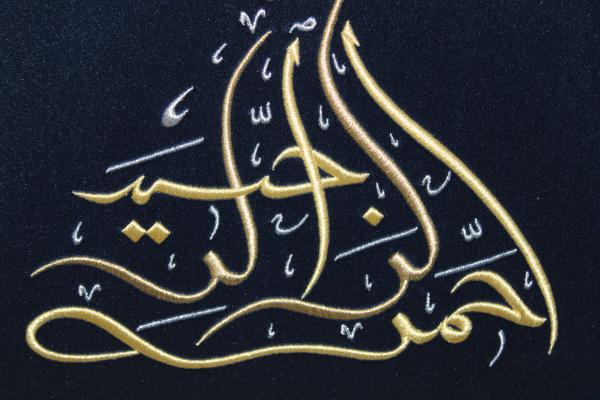 الرحمن الرحيم